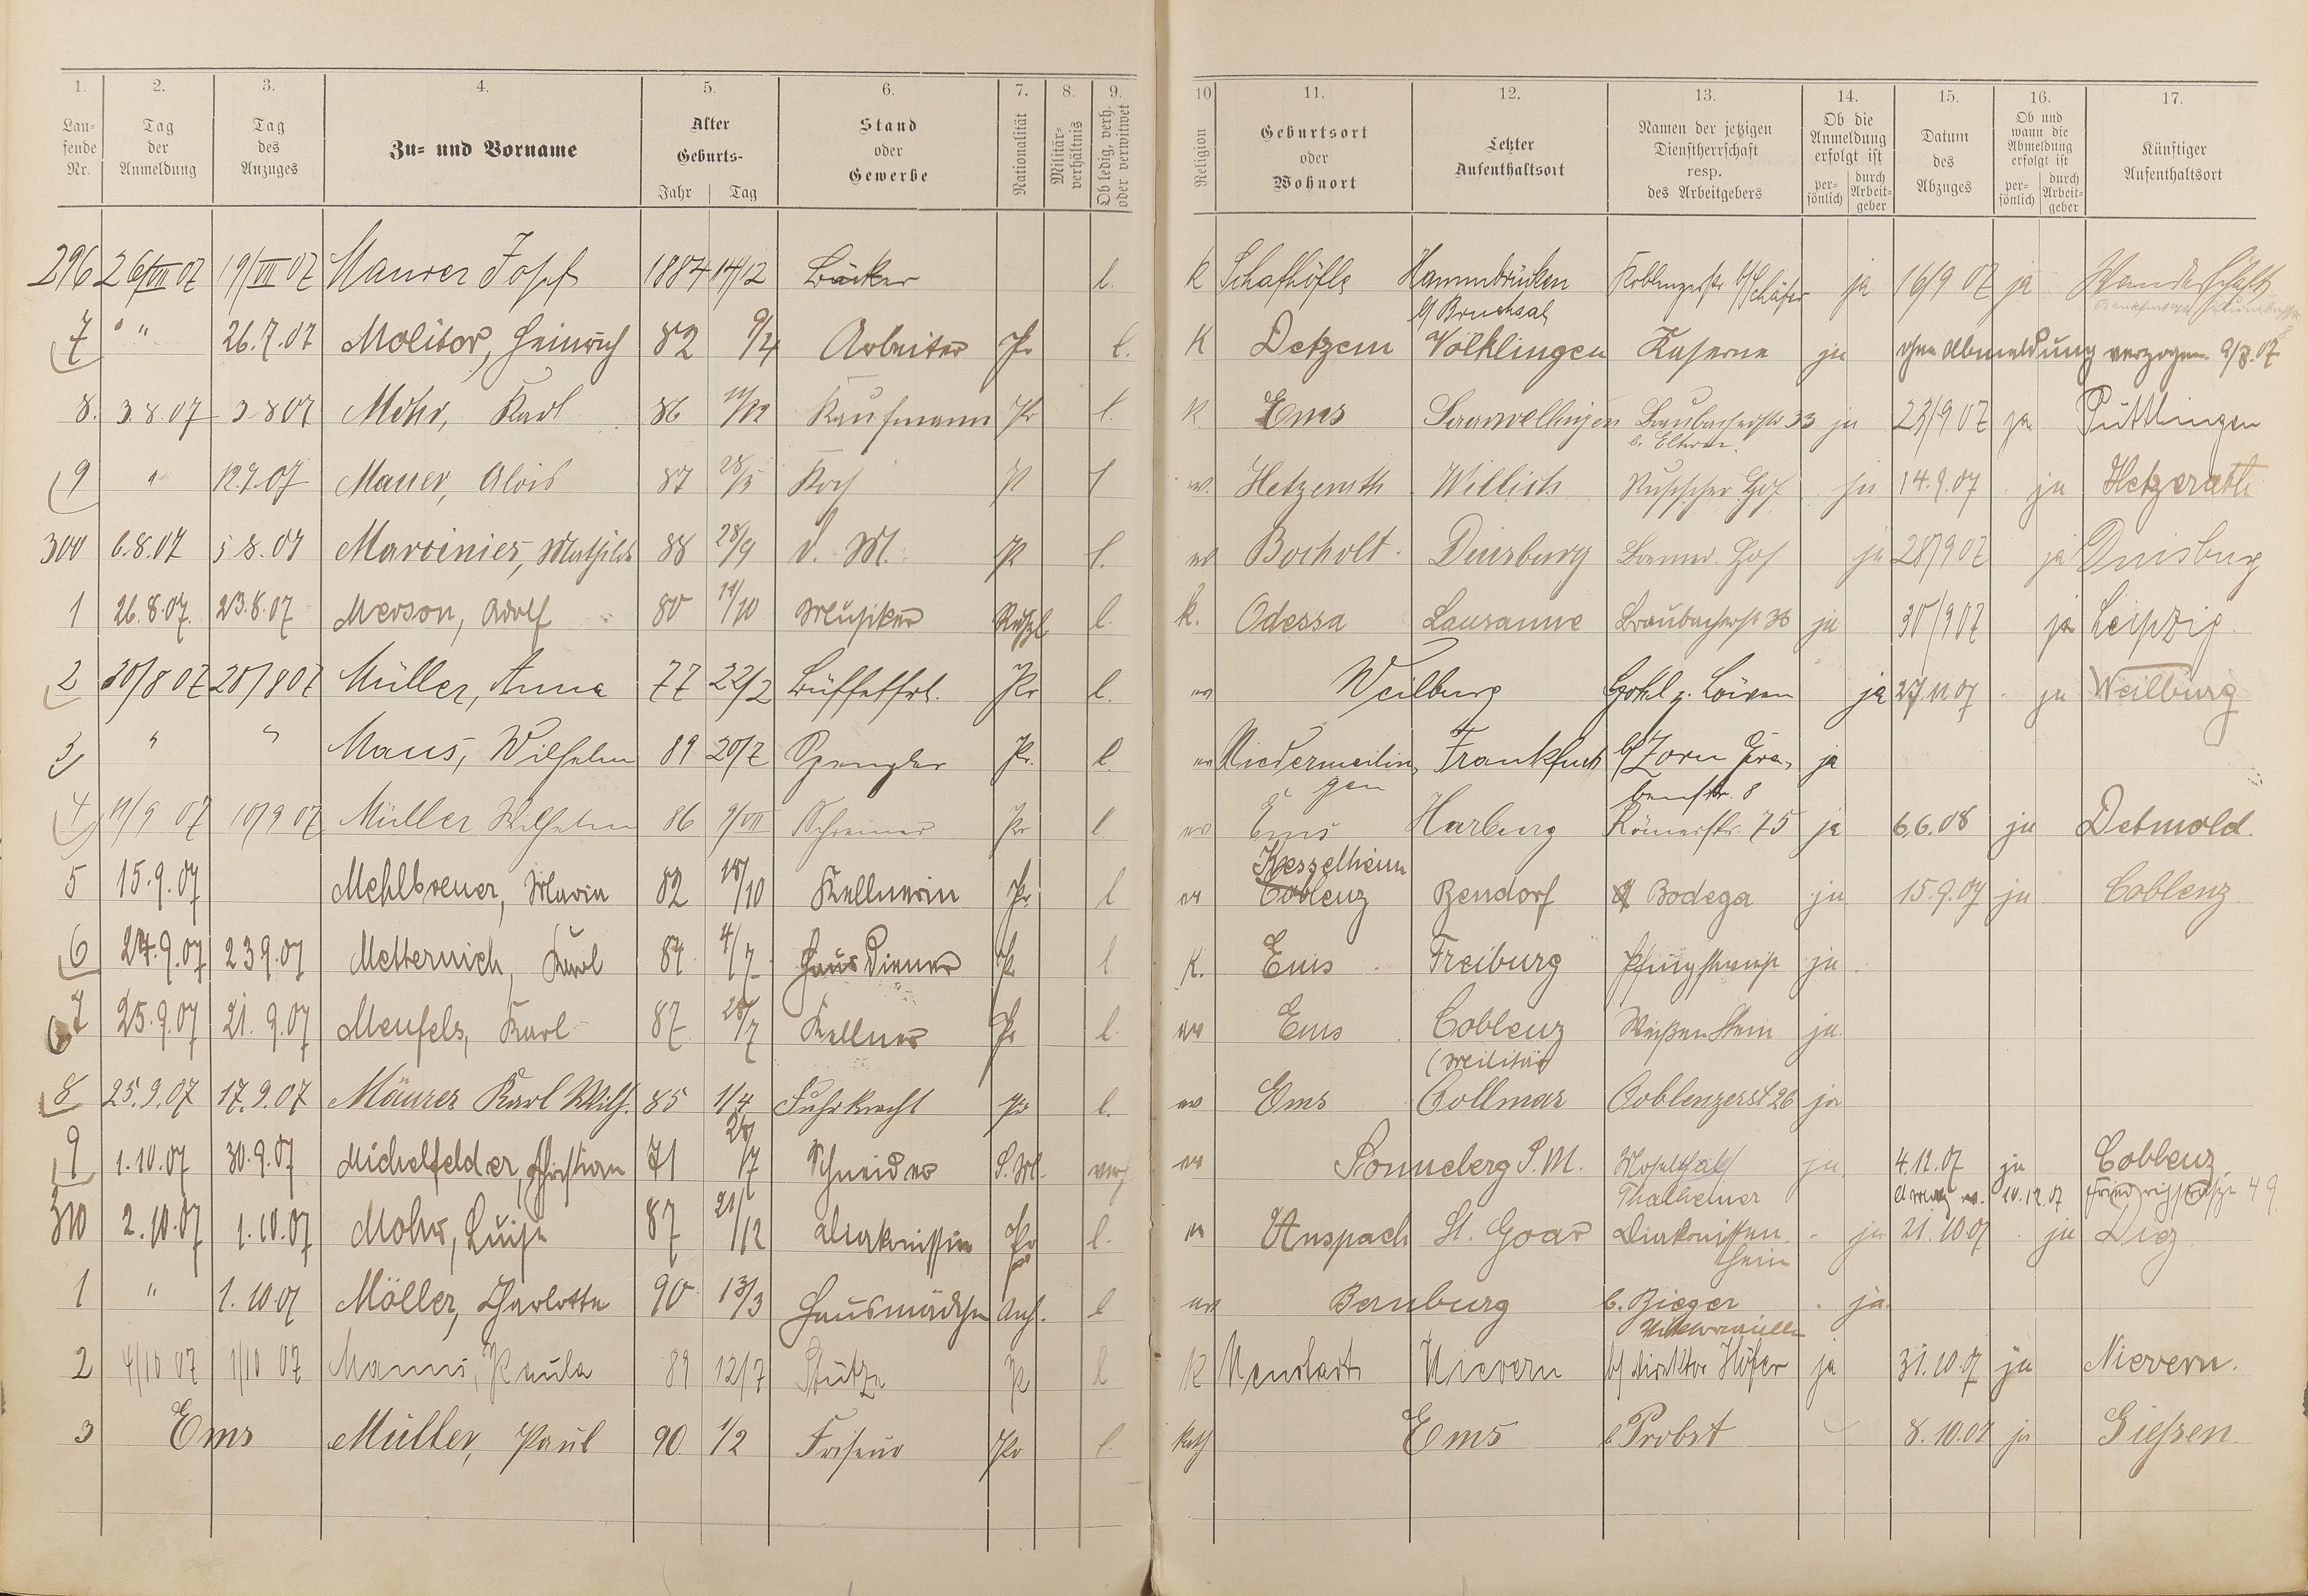 1. 2. 3. 4. 5. 6. 7. 8. 9. 10 11. 12. 13. 14. 15. 16. 17.
Laufende Nr. Tag der Anmeldung Tag des Anzuges Zu- und Vorname Alter Geburts- Jahr Tag Stand oder Gewerbe Nationalität Militärverhältnis Ob ledig, verh. oder verwitwet Religion Geburtsort oder Wohnort Letzter Aufenthaltsort Namen der jetzigen Dienstherrschaft resp. des Arbeitgebers Ob die Anmeldung erfolgt ist persönlich durch Arbeitgeber Datum des Abzuges Ob und wann die Abmeldung erfolgt ist persönlich durch Arbeitgeber Künftiger Aufenthaltsort
296 26/VII 07 19/VII 07 Maurer Josef 1884 14/12 Bäcker l. K Schafhöfle Hammbrücken b/ Bruchsal Koblenzerstr b/ Schäfer ja 16/9 07 ja Wanderschaft
7 " 26.7.07 Molitor, Heinrich 82 9/4 Arbeiter Pr l. K Detzem Völklingen Kaserne ja ohne Abmeldung verzogen 9/8.07
8. 3.8.07 3.8.07 Mohr, Karl 86 11/12 Kaufmann Pr l. K Ems Saarwellingen Braubacherstr 33 b. Eltern. ja 23/9 07 ja Püttlingen
9 " 12.7.07 Mauer, Alois 87 28/5 Koch P l ev. Hetzerath Willich Russischer Hof ja 14.9.07 ja Hetzerath
300 6.8.07 5.8.07 Marcinies, Mathilde 88 28/9 d. M. Pr l. ev Bocholt Duisburg Braunf. Hof ja 28/9 07 ja Duisburg
1 26.8.07. 23.8.07 Merson, Adolf 80 14/10 Musiker Rußl l. k. Odessa Lausanne Braubacherstr 36 ja 30/9 07 ja Leipzig
2 30/8 07 20/8 07 Müller, Anna 77 22/2 Büffetfrl. Pr l. ev Weilburg Hotel z. Löwen ja 27/11 07 ja Weilburg
3 " " Maus, Wilhelm 89 20/7 Spengler Pr. l. ev Niedermeilingen Frankfurt b/ Zorn Grabenstr. 8 ja
4 11/9 07 10/9 07 Müller Wilhelm 86 9/VII Schreiner Pr l. ev Ems Harburg Römerstr. 75 ja 6.6.08 ja Detmold.
5 15.9.07 Mehlbreuer, Maria 82 18/10 Kellnerin Pr l ev Kesselheim Coblenz Bendorf Bodega ja 15.9.07 ja Coblenz
6 24.9.07 23.9.07 Metternich, Karl 84 4/7 Hausdiener Pr l K. Ems Freiburg ja
7 25.9.07 21.9.07 Menfels, Karl 87 28/7 Kellner Pr l. ev Ems Coblenz (Militär Weißen Stein ja
8 25.9.07 17.9.07 Mäurer Karl Wilh. 85 1/4 Fuhrknecht Pr l. ev Ems Collmar Coblenzerst 26 ja
9 1.10.07 30.9.07 Michelfelder, Christian 71 28/7 Schneider S. M. verh ev Sonneberg S. M. Moselthal Thalheimer ja 4.12.07 ja 10.12.07 Coblenz. Friedrichstraße 49
310 2.10.07 1.10.07 Mohr, Luise 87 21/12 Diakonissin Pr l. ev Anspach St. Goar Diakonissenheim ja 21.10.07 ja Diez
1 " 1.10.07 Möller, Charlotte 90 13/3 Hausmädchen Anh. l ev Bernburg b. Rieger ja.
2 4/10 07 1/10 07 Manns, Paula 89 12/7 Stütze Pr l K Neustadt Nievern b/ Direktor Höfer ja 31.10.07 ja Nievern.
3 Ems Müller, Paul 90 1/2 Friseur Pr l. Kath Ems b Probst 8.10.07 ja Gießen